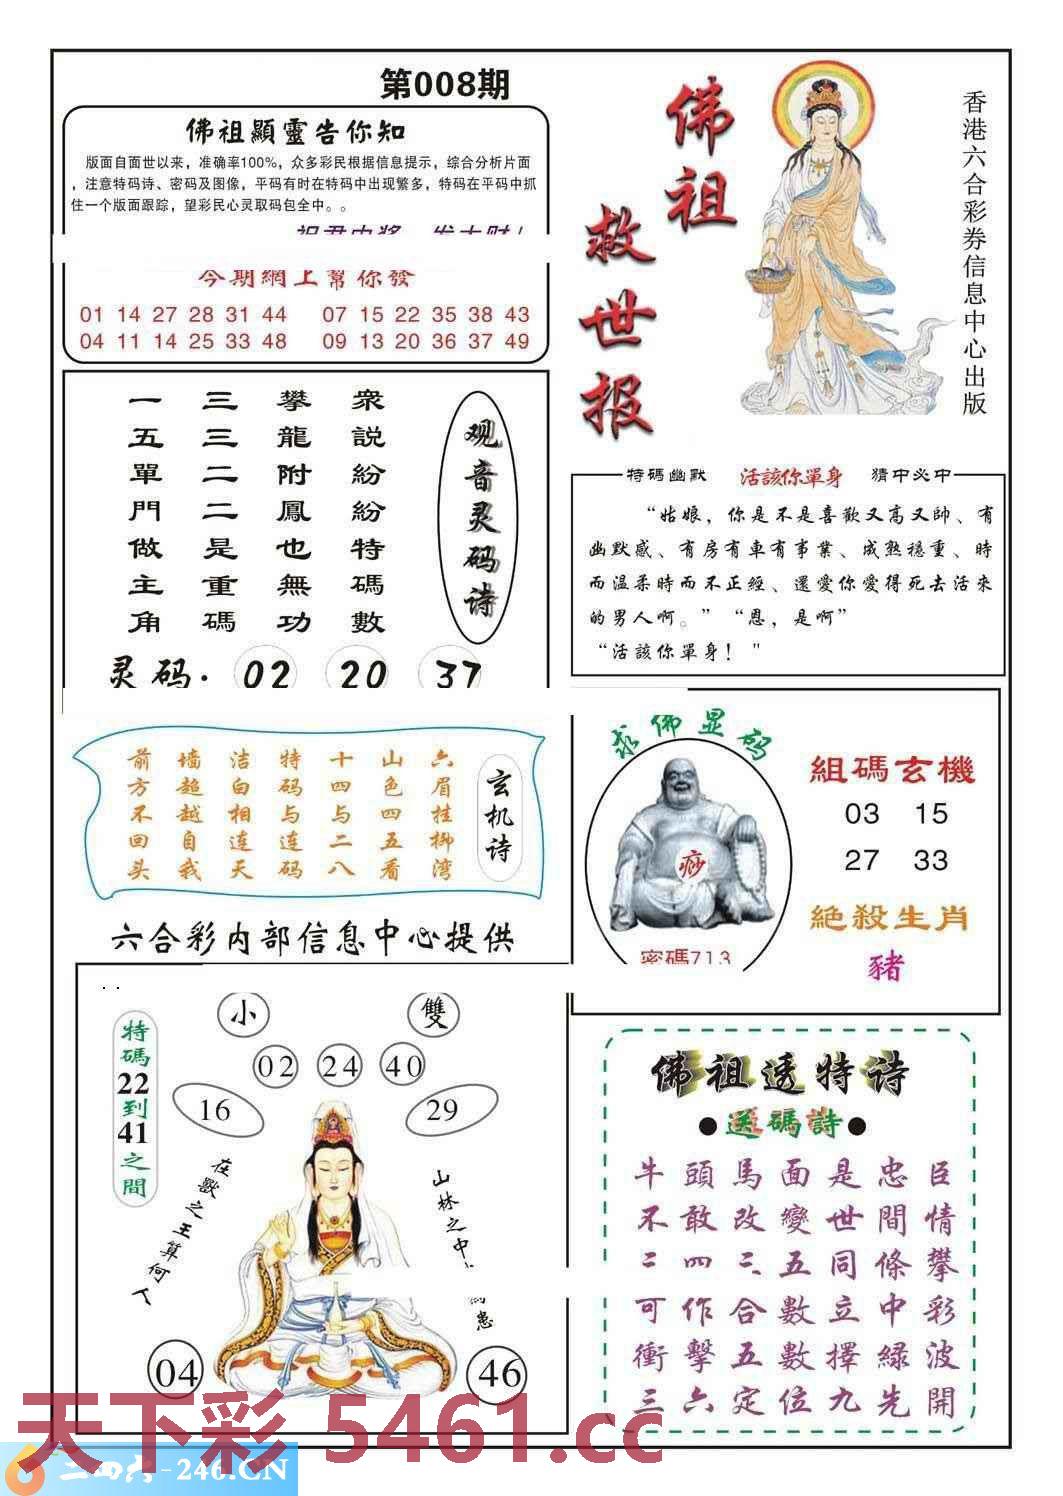 第008期
佛祖顯靈告你知
版面自面世以来，准确率100%，众多彩民根据信息提示，综合分析片面
，注意特码诗、密码及图像，平码有时在特码中出现繁多，特码在平码中抓
住一个版面跟踪，望彩民心灵取码包全中。。
今期網上幫你發
01 14 27 28 31 44 07 15 22 35 38 43
04 11 14 25 33 48 09 13 20 36 37 49
佛祖
救世报
香港六合彩券信息中心出版
观音灵码诗
衆説紛紛特碼數
攀龍附鳳也無功
三三二二是重碼
一五單門做主角
灵码. 02 20 37
特碼幽默 活該你單身 猜中必中
“姑娘，你是不是喜歡又高又帥、有
幽默感、有房有車有事業、成熟穩重、時
而溫柔時而不正經、還愛你愛得死去活來
的男人啊。” “恩，是啊”
“活該你單身！"
玄机诗
六眉挂柳湾
山色四五看
十四与二八
特码与连码
洁白相连天
墙超越自我
前方不回头
求佛显码
痧
密碼713
組碼玄機
03 15
27 33
絶殺生肖
豬
六合彩内部信息中心提供
特碼22到41之間
小 雙
02 24 40
16 29
在獸之王算何人
山林之中
患
04 46
佛祖透特诗
●送碼詩●
牛頭馬面是忠臣
不敢改變世間情
二四三五同條攀
可作合數立中彩
衝擊五數擇緑波
三六定位九先開
天下彩 5461.cc
二四六-246.CN